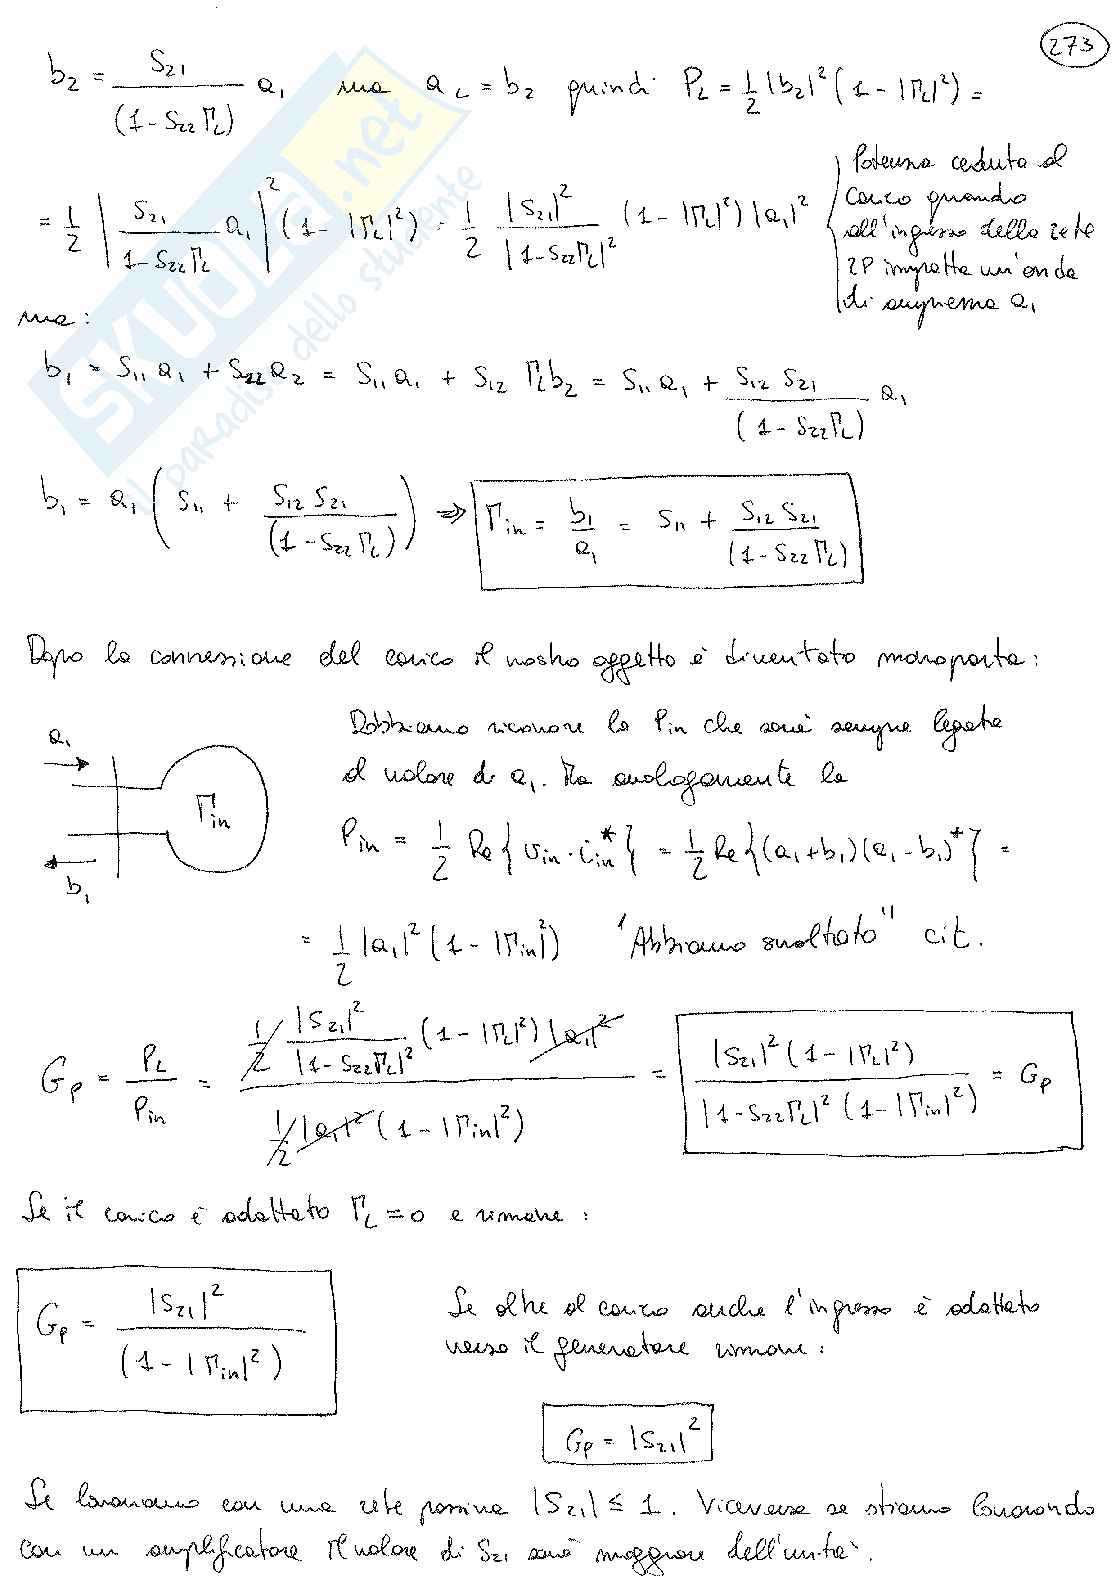 273
b₂ = S₂₁ / (1 - S₂₂ Γ_L) a₁ ma a_L = b₂ quindi P_L = 1/2 |b₂|² (1 - |Γ_L|²) =
= 1/2 | S₂₁ / (1 - S₂₂ Γ_L) a₁ |² (1 - |Γ_L|²) = 1/2 |S₂₁|² / |1 - S₂₂ Γ_L|² (1 - |Γ_L|²) |a₁|²
Potenza ceduta al
carico quando
all'ingresso della rete
2P impatta un'onda
di ampiezza a₁
ma:
b₁ = S₁₁ a₁ + S₂₂ a₂ = S₁₁ a₁ + S₁₂ Γ_L b₂ = S₁₁ a₁ + S₁₂ S₂₁ / (1 - S₂₂ Γ_L) a₁
b₁ = a₁ ( S₁₁ + S₁₂ S₂₁ / (1 - S₂₂ Γ_L) ) ⇒ Γ_in = b₁ / a₁ = S₁₁ + S₁₂ S₂₁ / (1 - S₂₂ Γ_L)
Dopo la connessione del carico il nostro oggetto è diventato monoporta:
a₁
Γ_in
b₁
Dobbiamo ricavare la Pin che sarà sempre legata
al valore di a₁. Ma analogamente la
P_in = 1/2 Re{ v_in · i_in* } = 1/2 Re{ (a₁ + b₁)(a₁ - b₁)* } =
= 1/2 |a₁|² (1 - |Γ_in|²) "Abbiamo svoltato" cit.
G_P = P_L / P_in = 1/2 |S₂₁|² / |1 - S₂₂ Γ_L|² (1 - |Γ_L|²) |a₁|² / 1/2 |a₁|² (1 - |Γ_in|²) = |S₂₁|² (1 - |Γ_L|²) / |1 - S₂₂ Γ_L|² (1 - |Γ_in|²) = G_P
Se il carico è adattato Γ_L = 0 e rimane:
G_P = |S₂₁|² / (1 - |Γ_in|²)
Se oltre al carico anche l'ingresso è adattato
verso il generatore rimane:
G_P = |S₂₁|²
Se lavoriamo con una rete passiva |S₂₁| ≤ 1. Viceversa se stiamo lavorando
con un amplificatore il valore di S₂₁ sarà maggiore dell'unità.
SKUOLA.net
il paradiso dello studente